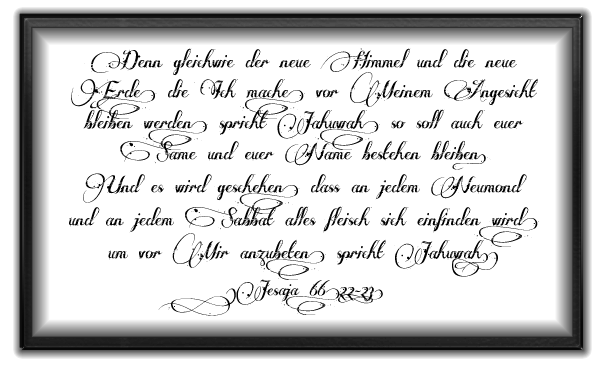 Denn gleichwie der neue Himmel und die neue
Erde die Ich mache vor Meinem Angesicht
bleiben werden spricht Jahuwah so soll auch euer
Same und euer Name bestehen bleiben
Und es wird geschehen dass an jedem Neumond
und an jedem Sabbat alles fleisch sich einfinden wird
um vor Mir anzubeten spricht Jahuwah
Jesaja 66 22-23